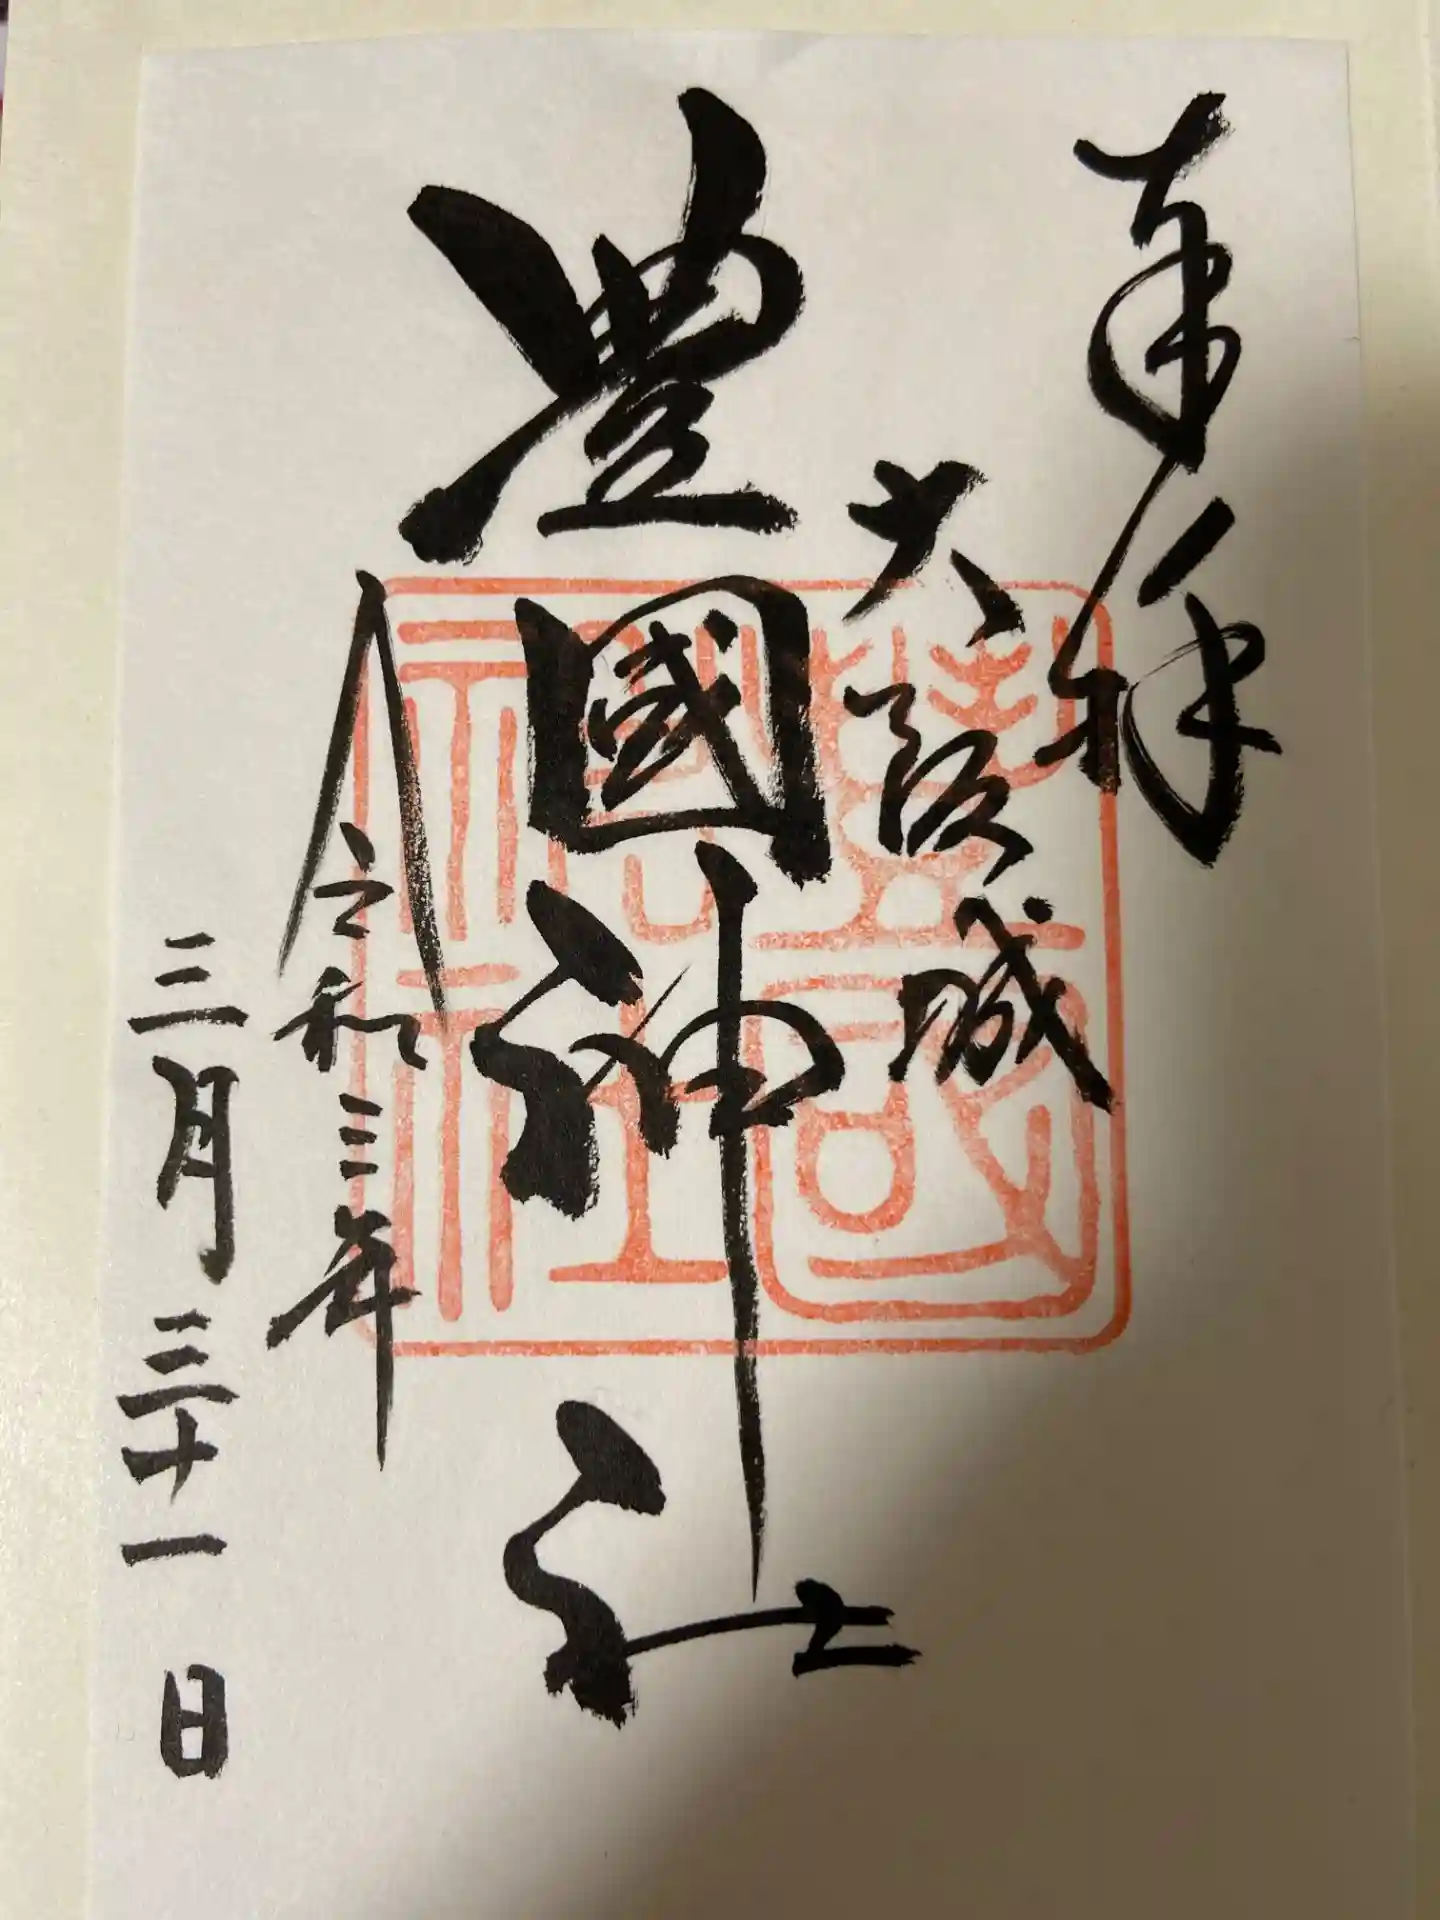 奉拝
大阪城
豊國神社
令和三年
三月三十一日
豊國神社